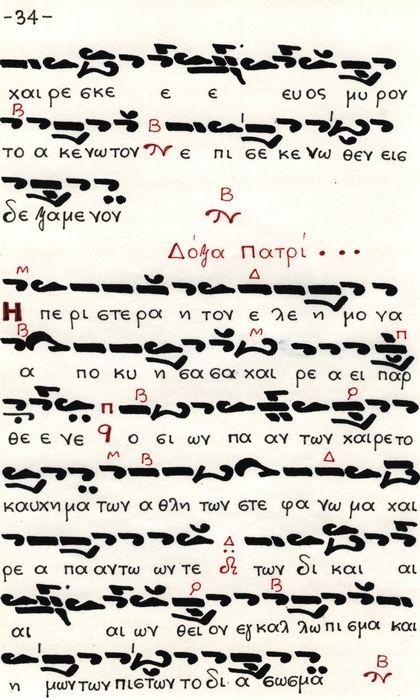 -34-
χαι ρε σκε ε ε ευος μυ ρον
Β Β
το α κε νωτον ε πι σε κε νω θεν εις
Β
δε ξαμενον
Δόξα Πατρί ...
Μ Δ
Η πε ρι στε ρα η τον ε λε η μο να
Β Μ Π
α πο κυ η σασα χαι ρε α ει παρ
Π Β
θε ε νε ο σι ων πα αν των χαιρε το
Μ Β Δ
καυχημα των α θλη των στε φα νω μα χαι
Δ
ρε α πα αντω ων τε των δι και αι
Β
αι αι ων θει ον εγ καλ λω πισμα και
Β
η μων των πιστων το δι α σωσμα